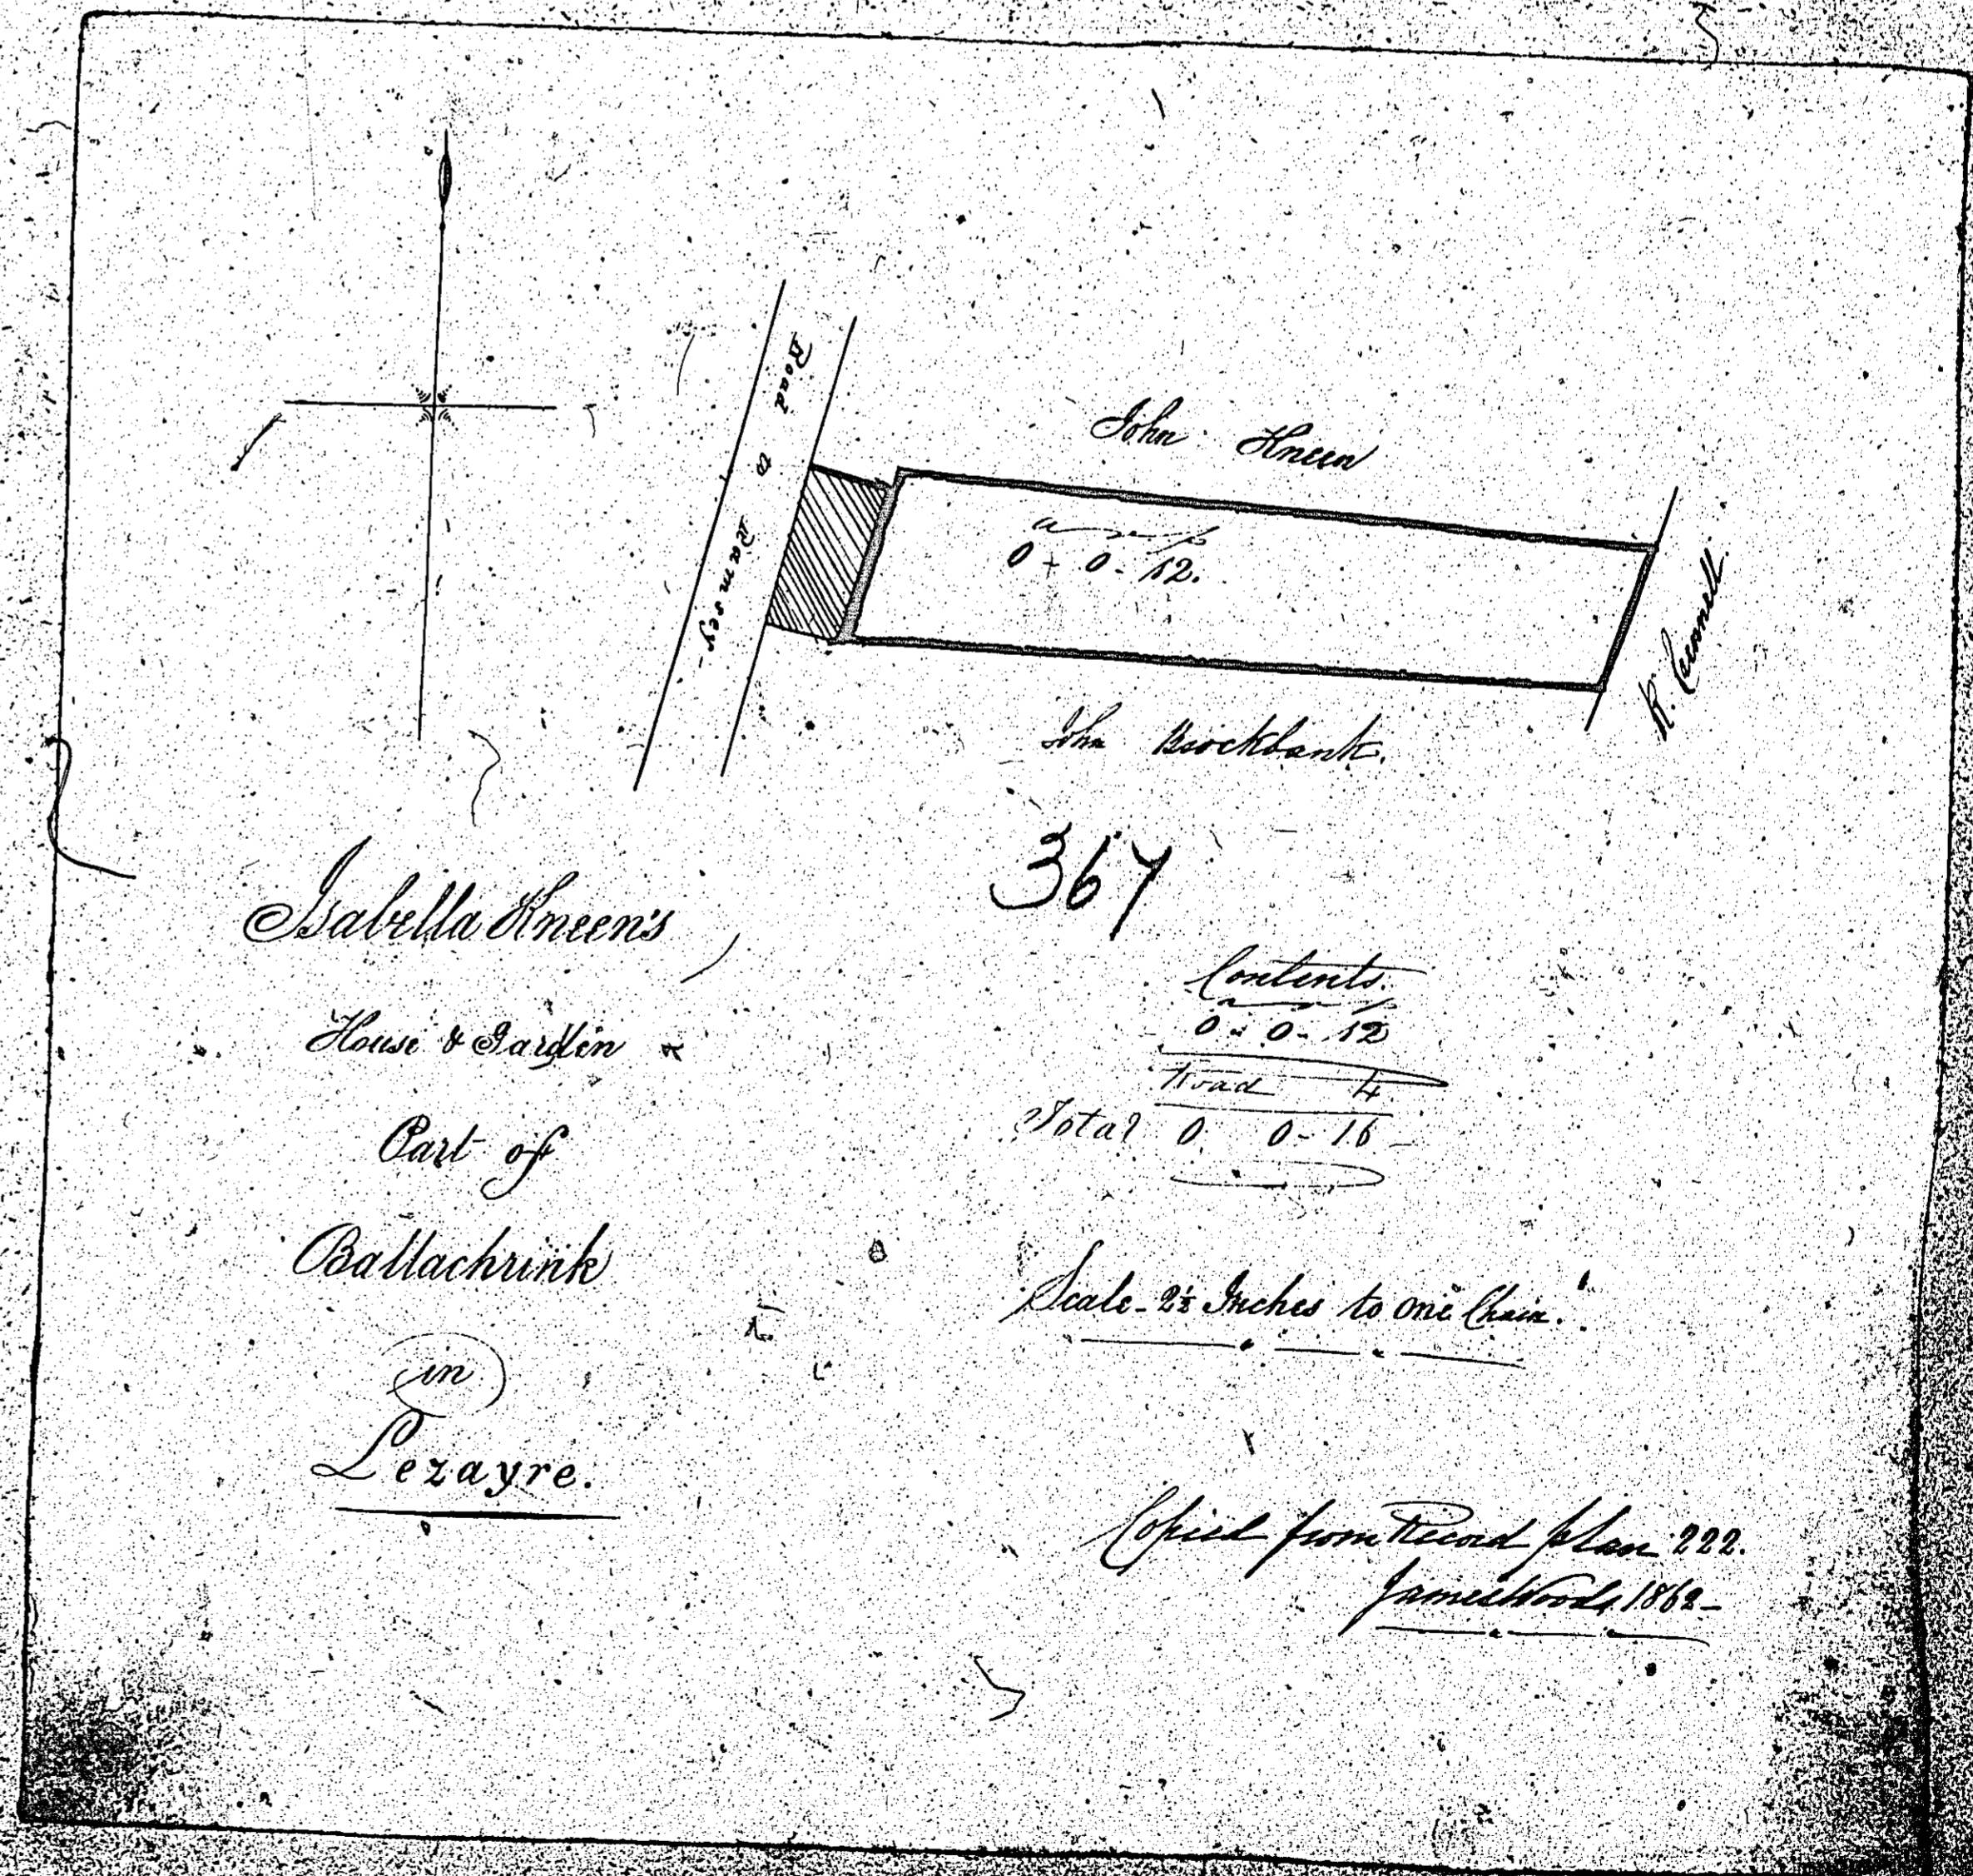 Road to Ramsey -
John Kneen
a r p
0 - 0 - 12.
R. Cannell
John Brockbank.
367
Isabella Kneen's
House & Garden
Part of
Ballachrink
in
Lezayre.
Contents.
a r p
0 - 0 - 12
Road 4
Total 0 0 - 16
Scale - 2½ Inches to one Chain.
Copied from Record plan 222.
James Wood, 1862 -